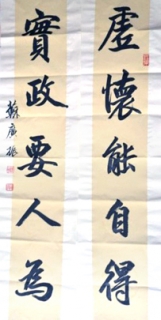 虛懷能自得
實政要人為
蘇廣振